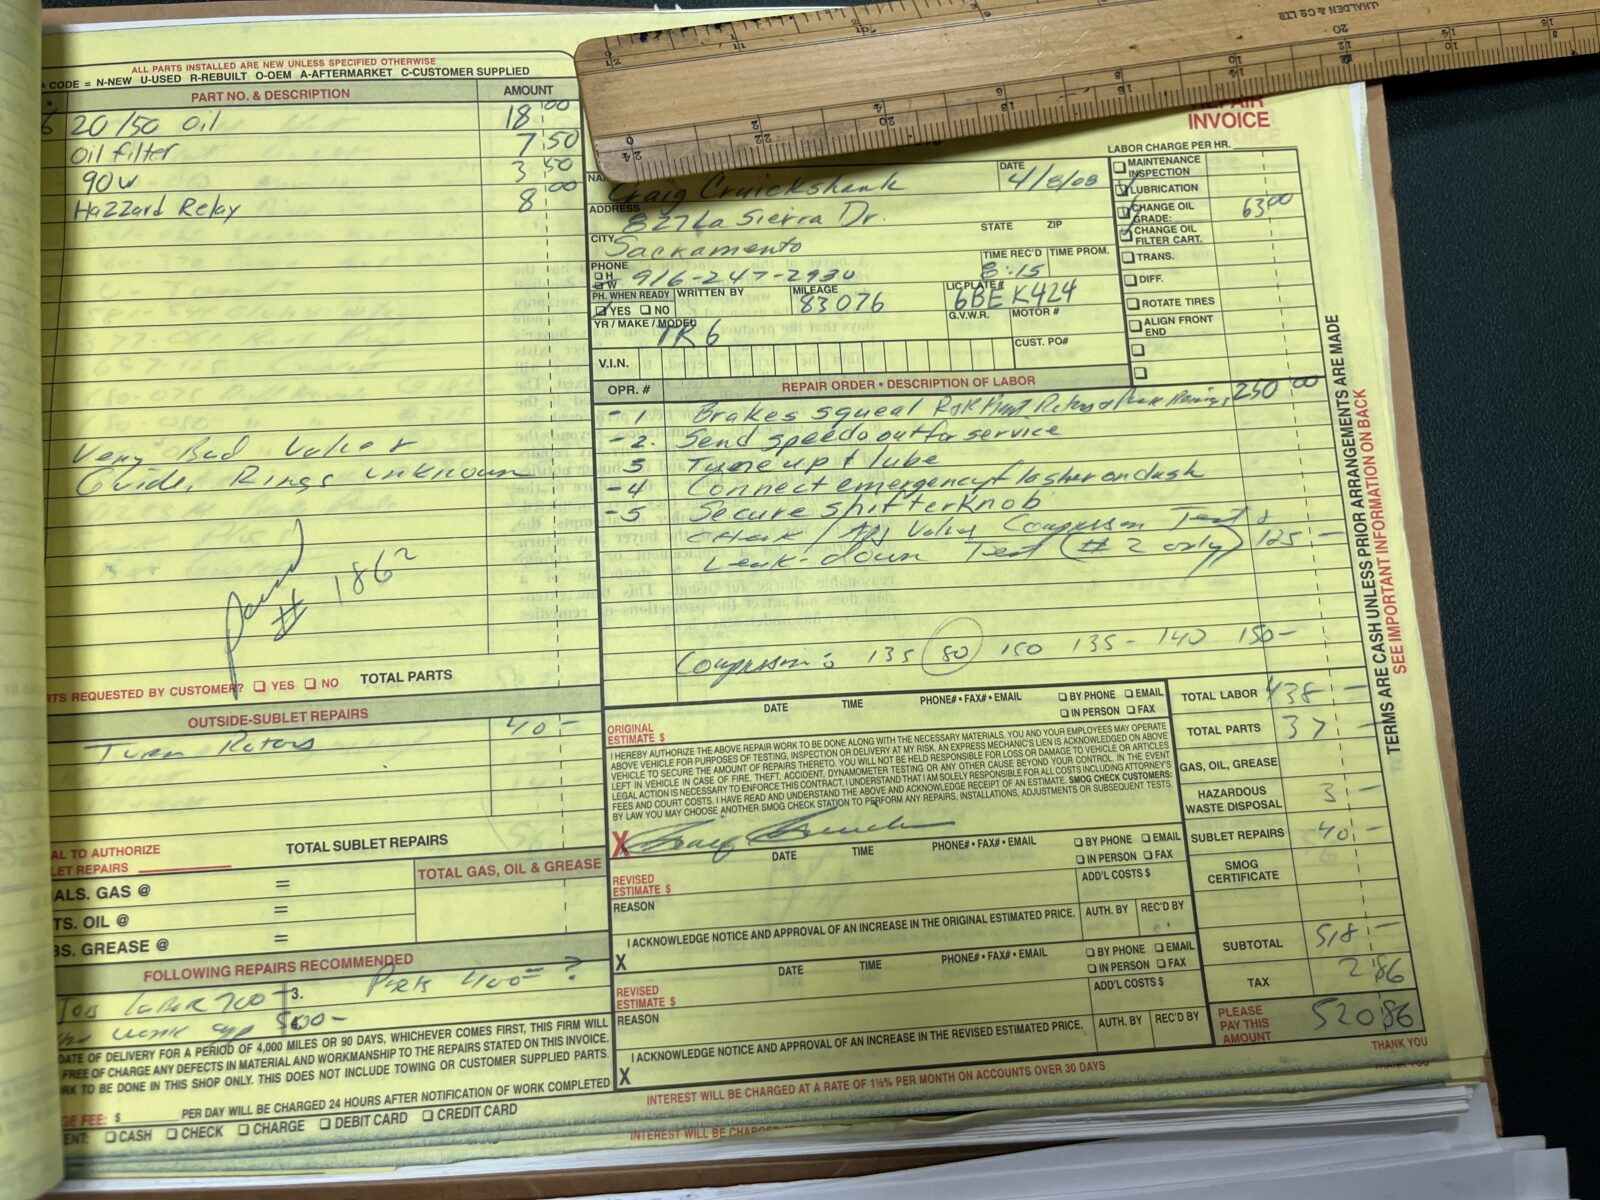 ALL PARTS INSTALLED ARE NEW UNLESS SPECIFIED OTHERWISE
• CODE = N-NEW U-USED R-REBUILT O-OEM A-AFTERMARKET C-CUSTOMER SUPPLIED
PART NO. & DESCRIPTION AMOUNT
6 20/50 Oil 18 00
Oil filter 7 50
90w 3 50
Hazzard Relay 8 00
Very Bad Valve &
Guide, Rings unknown
paid
# 1862
RTS REQUESTED BY CUSTOMER? YES NO TOTAL PARTS
OUTSIDE-SUBLET REPAIRS
Turn Rotors 40 -
TOTAL SUBLET REPAIRS
AL TO AUTHORIZE
LET REPAIRS
TOTAL GAS, OIL & GREASE
ALS. GAS @ =
TS. OIL @ =
BS. GREASE @ =
FOLLOWING REPAIRS RECOMMENDED
Labor 700 - 3. Parts 400 = ?
work 500 -
DATE OF DELIVERY FOR A PERIOD OF 4,000 MILES OR 90 DAYS, WHICHEVER COMES FIRST, THIS FIRM WILL
FREE OF CHARGE ANY DEFECTS IN MATERIAL AND WORKMANSHIP TO THE REPAIRS STATED ON THIS INVOICE.
RK TO BE DONE IN THIS SHOP ONLY. THIS DOES NOT INCLUDE TOWING OR CUSTOMER SUPPLIED PARTS.
GE FEE: $ PER DAY WILL BE CHARGED 24 HOURS AFTER NOTIFICATION OF WORK COMPLETED
ENT: CASH CHECK CHARGE DEBIT CARD CREDIT CARD
J.HALDEN & CO LTD
REPAIR
INVOICE
LABOR CHARGE PER HR.
NA Craig Cruickshank DATE 4/8/08
ADDRESS 827 La Sierra Dr.
CITY Sacramento STATE ZIP
PHONE H W 916-247-2930 TIME REC'D 8:15 TIME PROM.
PH. WHEN READY YES NO WRITTEN BY MILEAGE 83076 LIC PLATE # 6BEK424
YR / MAKE / MODEL TR6 G.V.W.R. MOTOR #
V.I.N. CUST. PO#
MAINTENANCE INSPECTION
LUBRICATION
CHANGE OIL GRADE: 63 00
CHANGE OIL FILTER CART.
TRANS.
DIFF.
ROTATE TIRES
ALIGN FRONT END
OPR. # REPAIR ORDER • DESCRIPTION OF LABOR
- 1. Brakes squeal R&R Front Rotors 250 00
- 2. Send speedo out for service
3 Tune up & lube
-4 Connect emergency flasher on dash
-5 Secure shifter Knob
Check / Adj Valves Compression Test &
Leak-down Test (#2 only) 125 -
Compression: 135 80 150 135 - 140 150 -
TERMS ARE CASH UNLESS PRIOR ARRANGEMENTS ARE MADE
SEE IMPORTANT INFORMATION ON BACK
DATE TIME PHONE# • FAX# • EMAIL BY PHONE EMAIL
IN PERSON FAX
ORIGINAL
ESTIMATE $
I HEREBY AUTHORIZE THE ABOVE REPAIR WORK TO BE DONE ALONG WITH THE NECESSARY MATERIALS. YOU AND YOUR EMPLOYEES MAY OPERATE
ABOVE VEHICLE FOR PURPOSES OF TESTING, INSPECTION OR DELIVERY AT MY RISK. AN EXPRESS MECHANIC'S LIEN IS ACKNOWLEDGED ON ABOVE
VEHICLE TO SECURE THE AMOUNT OF REPAIRS THERETO. YOU WILL NOT BE HELD RESPONSIBLE FOR LOSS OR DAMAGE TO VEHICLE OR ARTICLES
LEFT IN VEHICLE IN CASE OF FIRE, THEFT, ACCIDENT, DYNAMOMETER TESTING OR ANY OTHER CAUSE BEYOND YOUR CONTROL. IN THE EVENT
LEGAL ACTION IS NECESSARY TO ENFORCE THIS CONTRACT, I UNDERSTAND THAT I AM SOLELY RESPONSIBLE FOR ALL COSTS INCLUDING ATTORNEY'S
FEES AND COURT COSTS. I HAVE READ AND UNDERSTAND THE ABOVE AND ACKNOWLEDGE RECEIPT OF AN ESTIMATE. SMOG CHECK CUSTOMERS:
BY LAW YOU MAY CHOOSE ANOTHER SMOG CHECK STATION TO PERFORM ANY REPAIRS, INSTALLATIONS, ADJUSTMENTS OR SUBSEQUENT TESTS.
X
DATE TIME PHONE# • FAX# • EMAIL BY PHONE EMAIL
IN PERSON FAX
REVISED
ESTIMATE $ ADD'L COSTS $
REASON
AUTH. BY REC'D BY
I ACKNOWLEDGE NOTICE AND APPROVAL OF AN INCREASE IN THE ORIGINAL ESTIMATED PRICE.
X
DATE TIME PHONE# • FAX# • EMAIL BY PHONE EMAIL
IN PERSON FAX
REVISED
ESTIMATE $ ADD'L COSTS $
REASON
AUTH. BY REC'D BY
I ACKNOWLEDGE NOTICE AND APPROVAL OF AN INCREASE IN THE REVISED ESTIMATED PRICE.
X
TOTAL LABOR 438 -
TOTAL PARTS 37 -
GAS, OIL, GREASE
HAZARDOUS WASTE DISPOSAL 3 -
SUBLET REPAIRS 40 -
SMOG CERTIFICATE
SUBTOTAL 518 -
TAX 2 86
PLEASE PAY THIS AMOUNT 520 86
THANK YOU
INTEREST WILL BE CHARGED AT A RATE OF 1½% PER MONTH ON ACCOUNTS OVER 30 DAYS
INTEREST WILL BE CHARGE